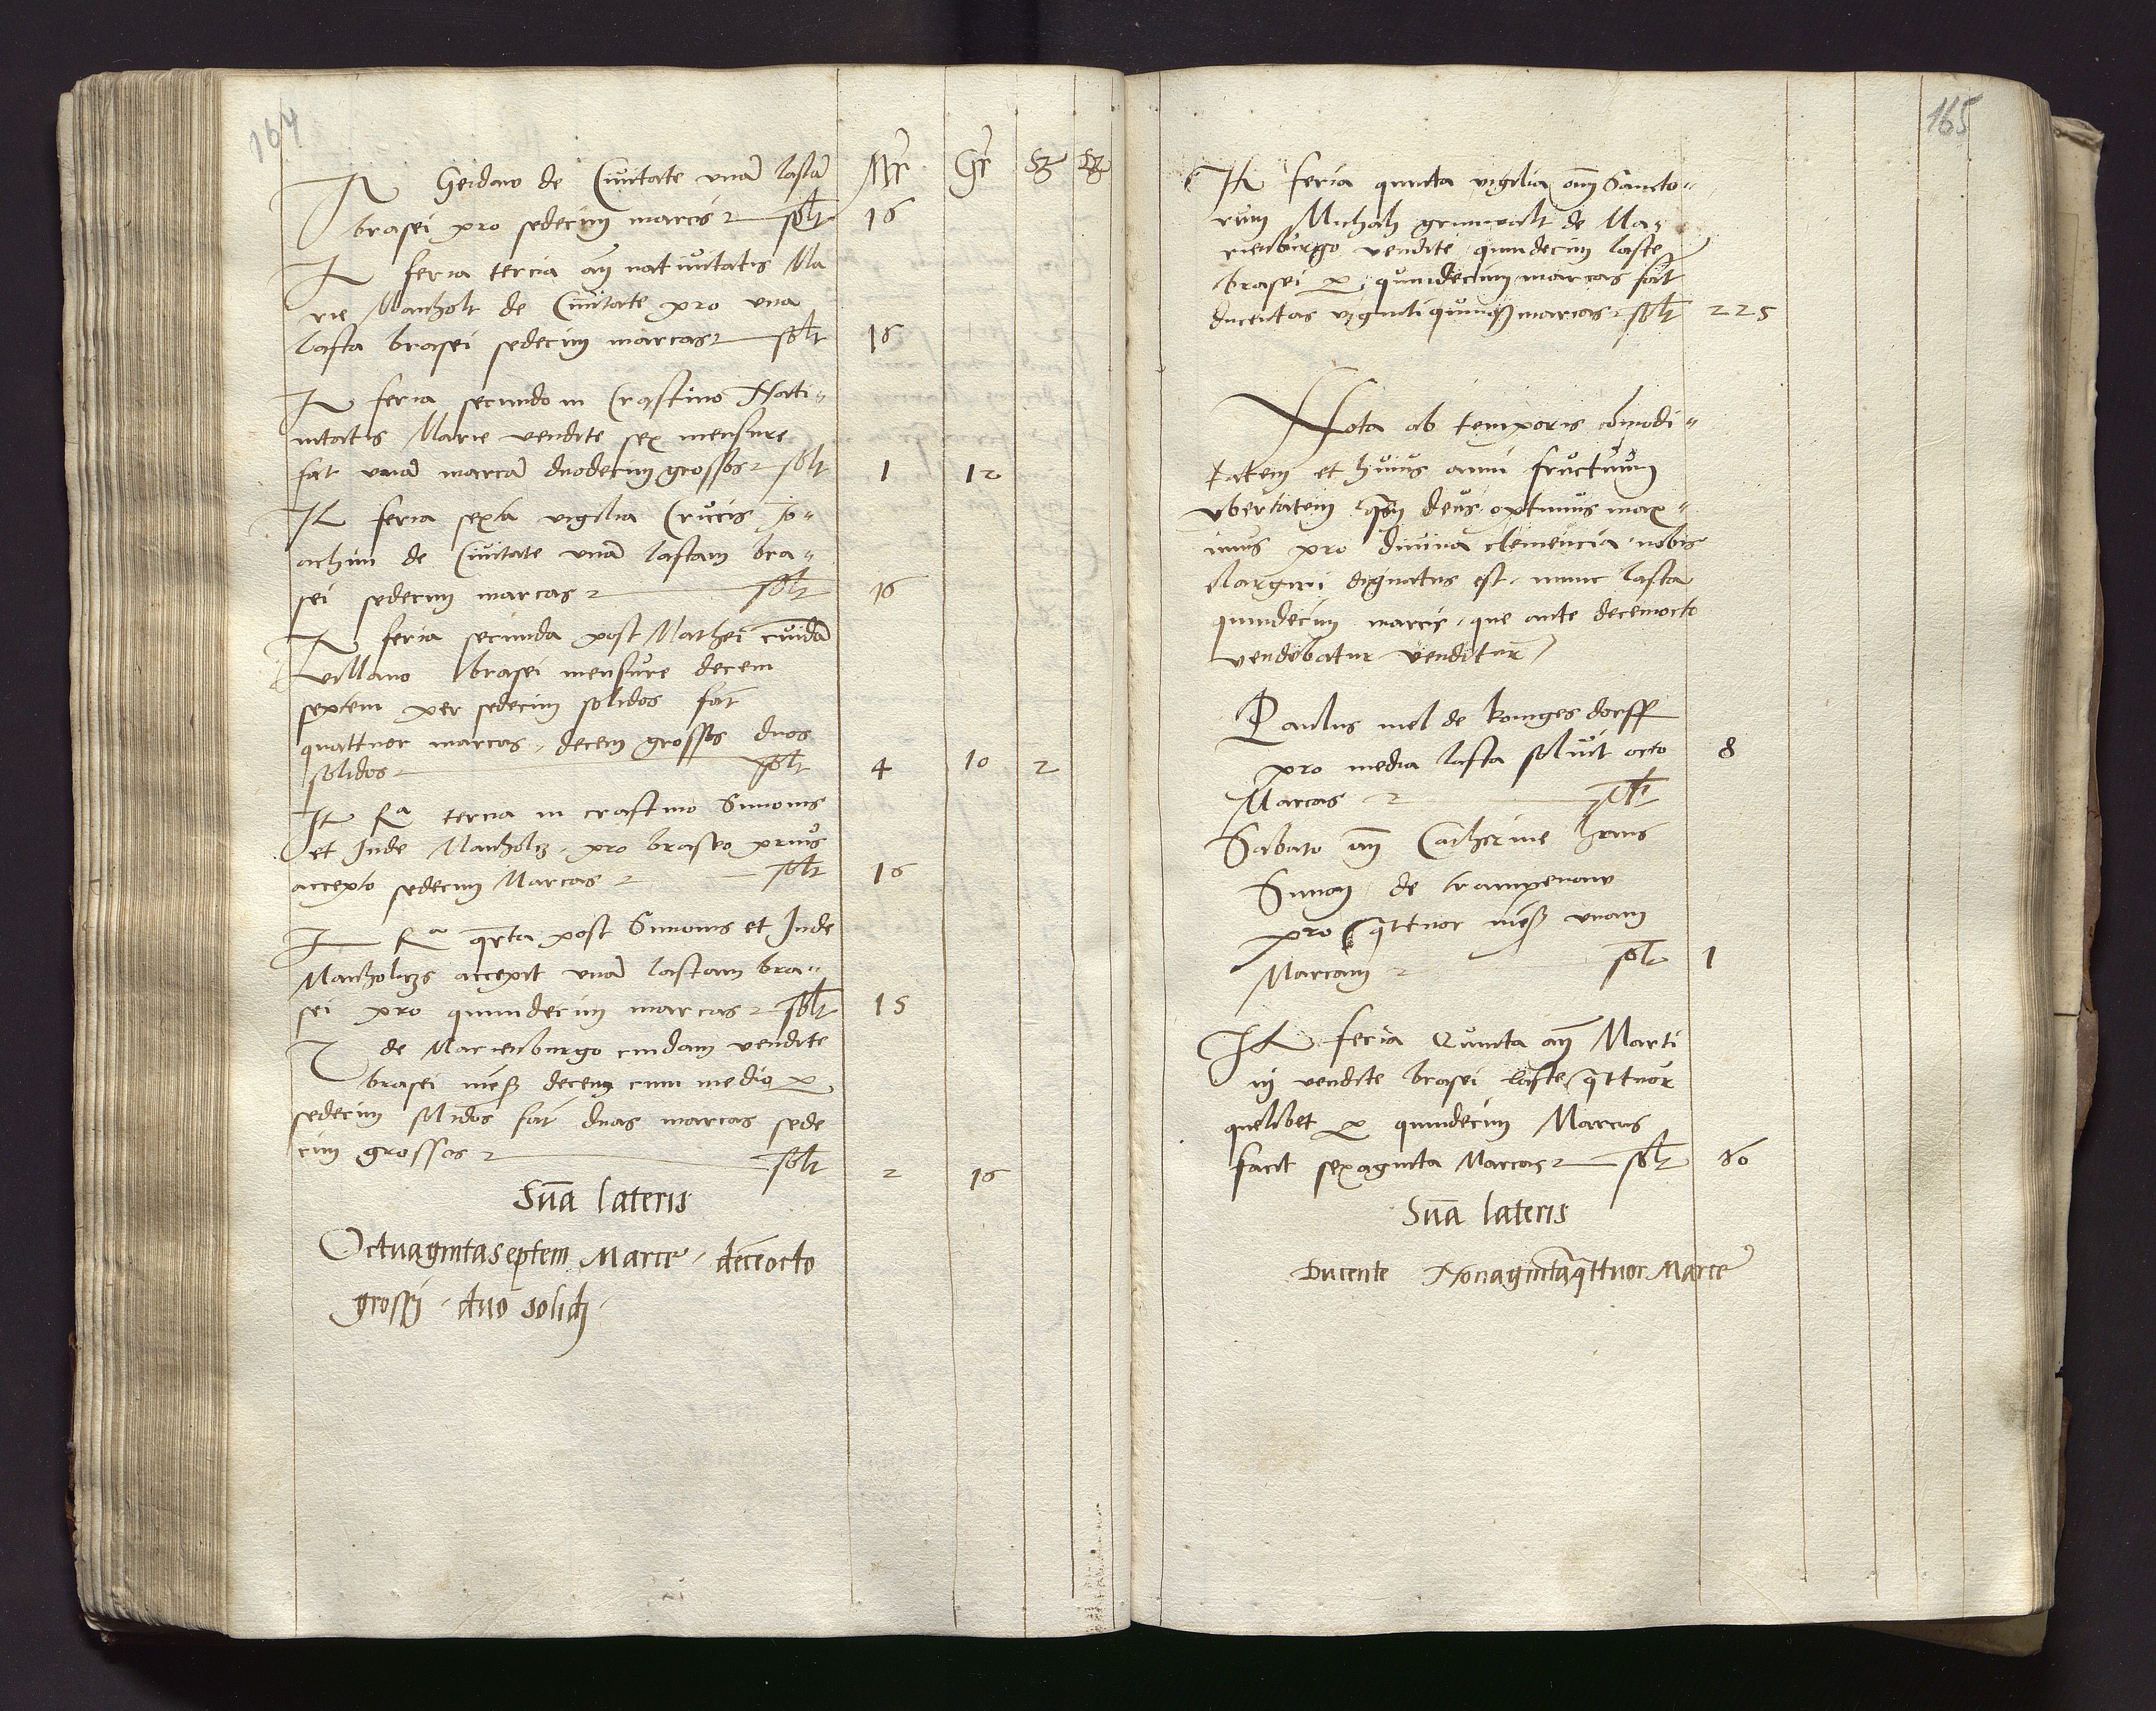 164
It Heidaw de Ciuitate vnā lastā Mr Gr
brasei pro sedecim marcis solt 16
It feria tercia an natiuitatis Ma
rie Manholt de Ciuitate pro vna
lasta brasei sedecim marcas solt 16
It feria secundo in Crastino Nati„
uitatis Marie vendite sex mensure
fāt vnā marcā duodecim grossos solt 1 12
It feria sexta vigilia Crucis Jo„
achim de Ciuitate vnā lastam bra„
sei sedecim marcas solt 16
It feria secunda post Mathei cuidā
villano brasei mensure decem
septem per sedecim solidos fāt
quattuor marcas, decem grossos duos
solidos solt 4 10 2
It fa tercia in crastino Simonis
et Jude Manholtz pro braseo prius
accepto sedecim Marcas solt 16
It fa qrta post Simonis et Jude
Manholtzs accepit vnā lastam bra„
sei pro quindecim marcas solt 15
It de Marienburgo cuidam vendite
brasei mēs decem cum medio p
sedecim solidos fāt duas marcas sede
cim grossos solt 2 16
Suā lateris
Octuagintaseptem Marce, deceocto
grossi, duo solidi
165
It feria quinta vigilia oīm Sancto„
rum Michah grunwalt de Ma„
rienburgo vendite quindecim laste
brasei p quindecim marcas fāt
ducentas vigintiquinq marcas solt 225
Nota ob temporis cōmodi„
tatem et huius anni fructuum
vbertatem qm deus optimus max„
imus pro diuina clemencia nobis
elargiri dignatus est, nunc lasta
quindecim marcis, que ante decemocto
vendebatur venditur
Paulus mel de konigesdorff
pro media lasta soluit octo 8
Marcas solt
Sabato an Catherine hans
Simon de trampenaw
pro qttuor mēs vnam
Marcam solt 1
It feria Quinta an Marti
nj vendite brasei laste qttuor
quelibet p quindecim Marcas
facit sexaginta Marcas solt 60
Suā lateris
Ducente Nonagintaqttuor Marce